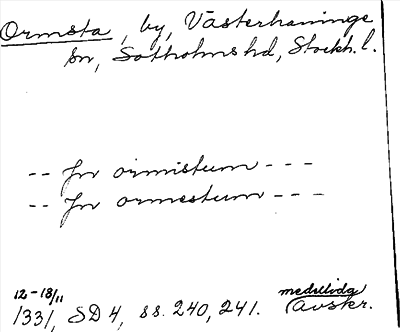 Ormsta, by, Västerhaninge
sn, Sotholms hd, Stockh. l.
-- Jn ormistum ---
-- Jn ormestum ---
12-18/11
1331, SD 4, ss. 240, 241.
medeltida
Avskr.